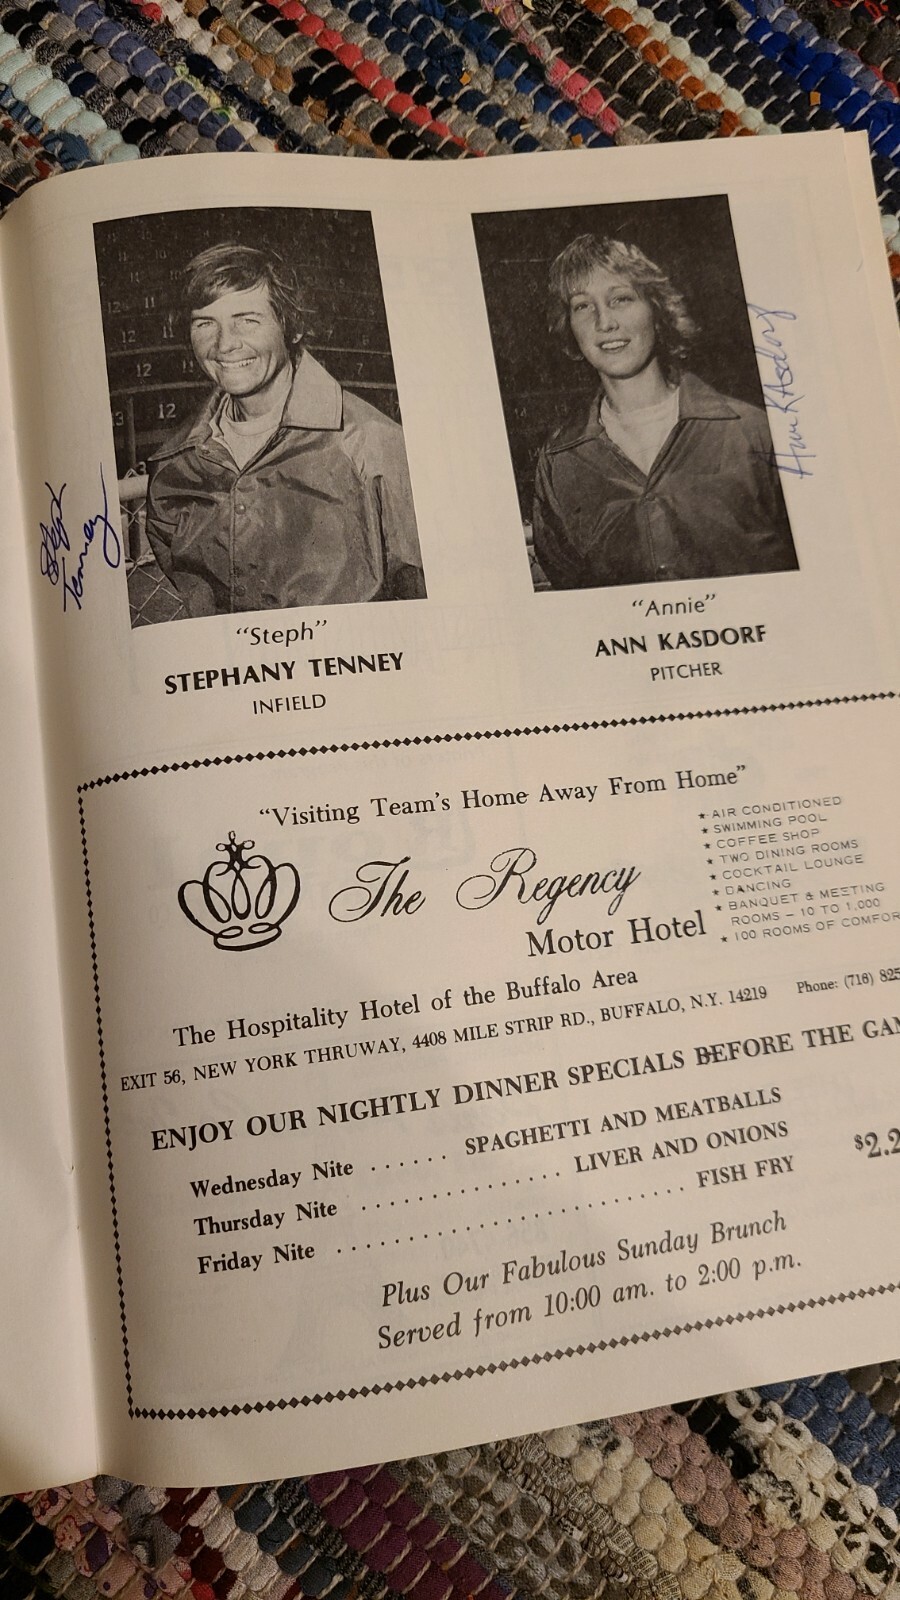 Steph
Tenney
Ann Kasdorf
"Steph"
STEPHANY TENNEY
INFIELD
"Annie"
ANN KASDORF
PITCHER
"Visiting Team's Home Away From Home"
The Regency
Motor Hotel
★ AIR CONDITIONED
★ SWIMMING POOL
★ COFFEE SHOP
★ TWO DINING ROOMS
★ COCKTAIL LOUNGE
★ DANCING
★ BANQUET & MEETING
ROOMS – 10 TO 1,000
★ 100 ROOMS OF COMFOR
The Hospitality Hotel of the Buffalo Area
EXIT 56, NEW YORK THRUWAY, 4408 MILE STRIP RD., BUFFALO, N.Y. 14219 Phone: (716) 825
ENJOY OUR NIGHTLY DINNER SPECIALS BEFORE THE GA
Wednesday Nite ...... SPAGHETTI AND MEATBALLS
Thursday Nite ............... LIVER AND ONIONS $2.2
Friday Nite ......................... FISH FRY
Plus Our Fabulous Sunday Brunch
Served from 10:00 am. to 2:00 p.m.